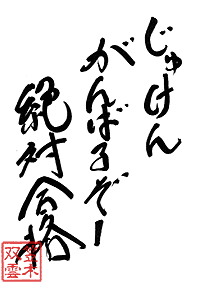 じゅけん
がんばるぞー
絶対合格